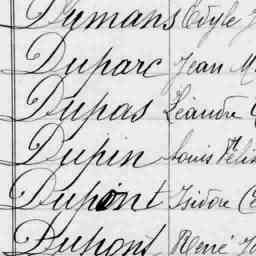 Dumans Edyle J
Duparc Jean M
Dupas Léandre
Dupin Louis Féli
Dupont Isidore
Dupont René